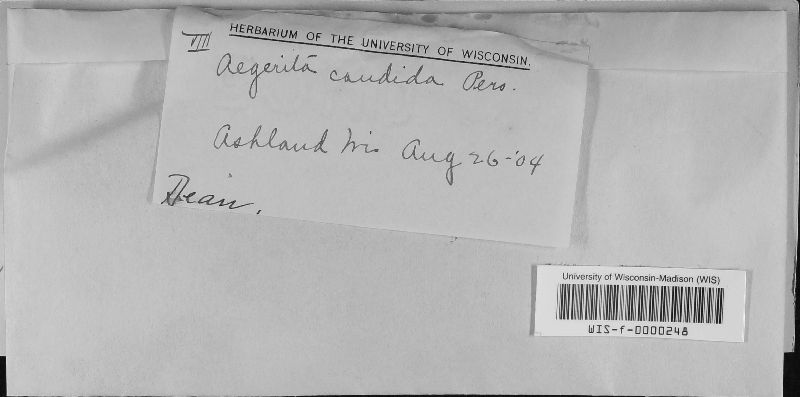 VIII
HERBARIUM OF THE UNIVERSITY OF WISCONSIN.
Aegerita candida Pers.
Ashland Wis Aug 26-'04
Dean.
University of Wisconsin-Madison (WIS)
WIS-f-0000248